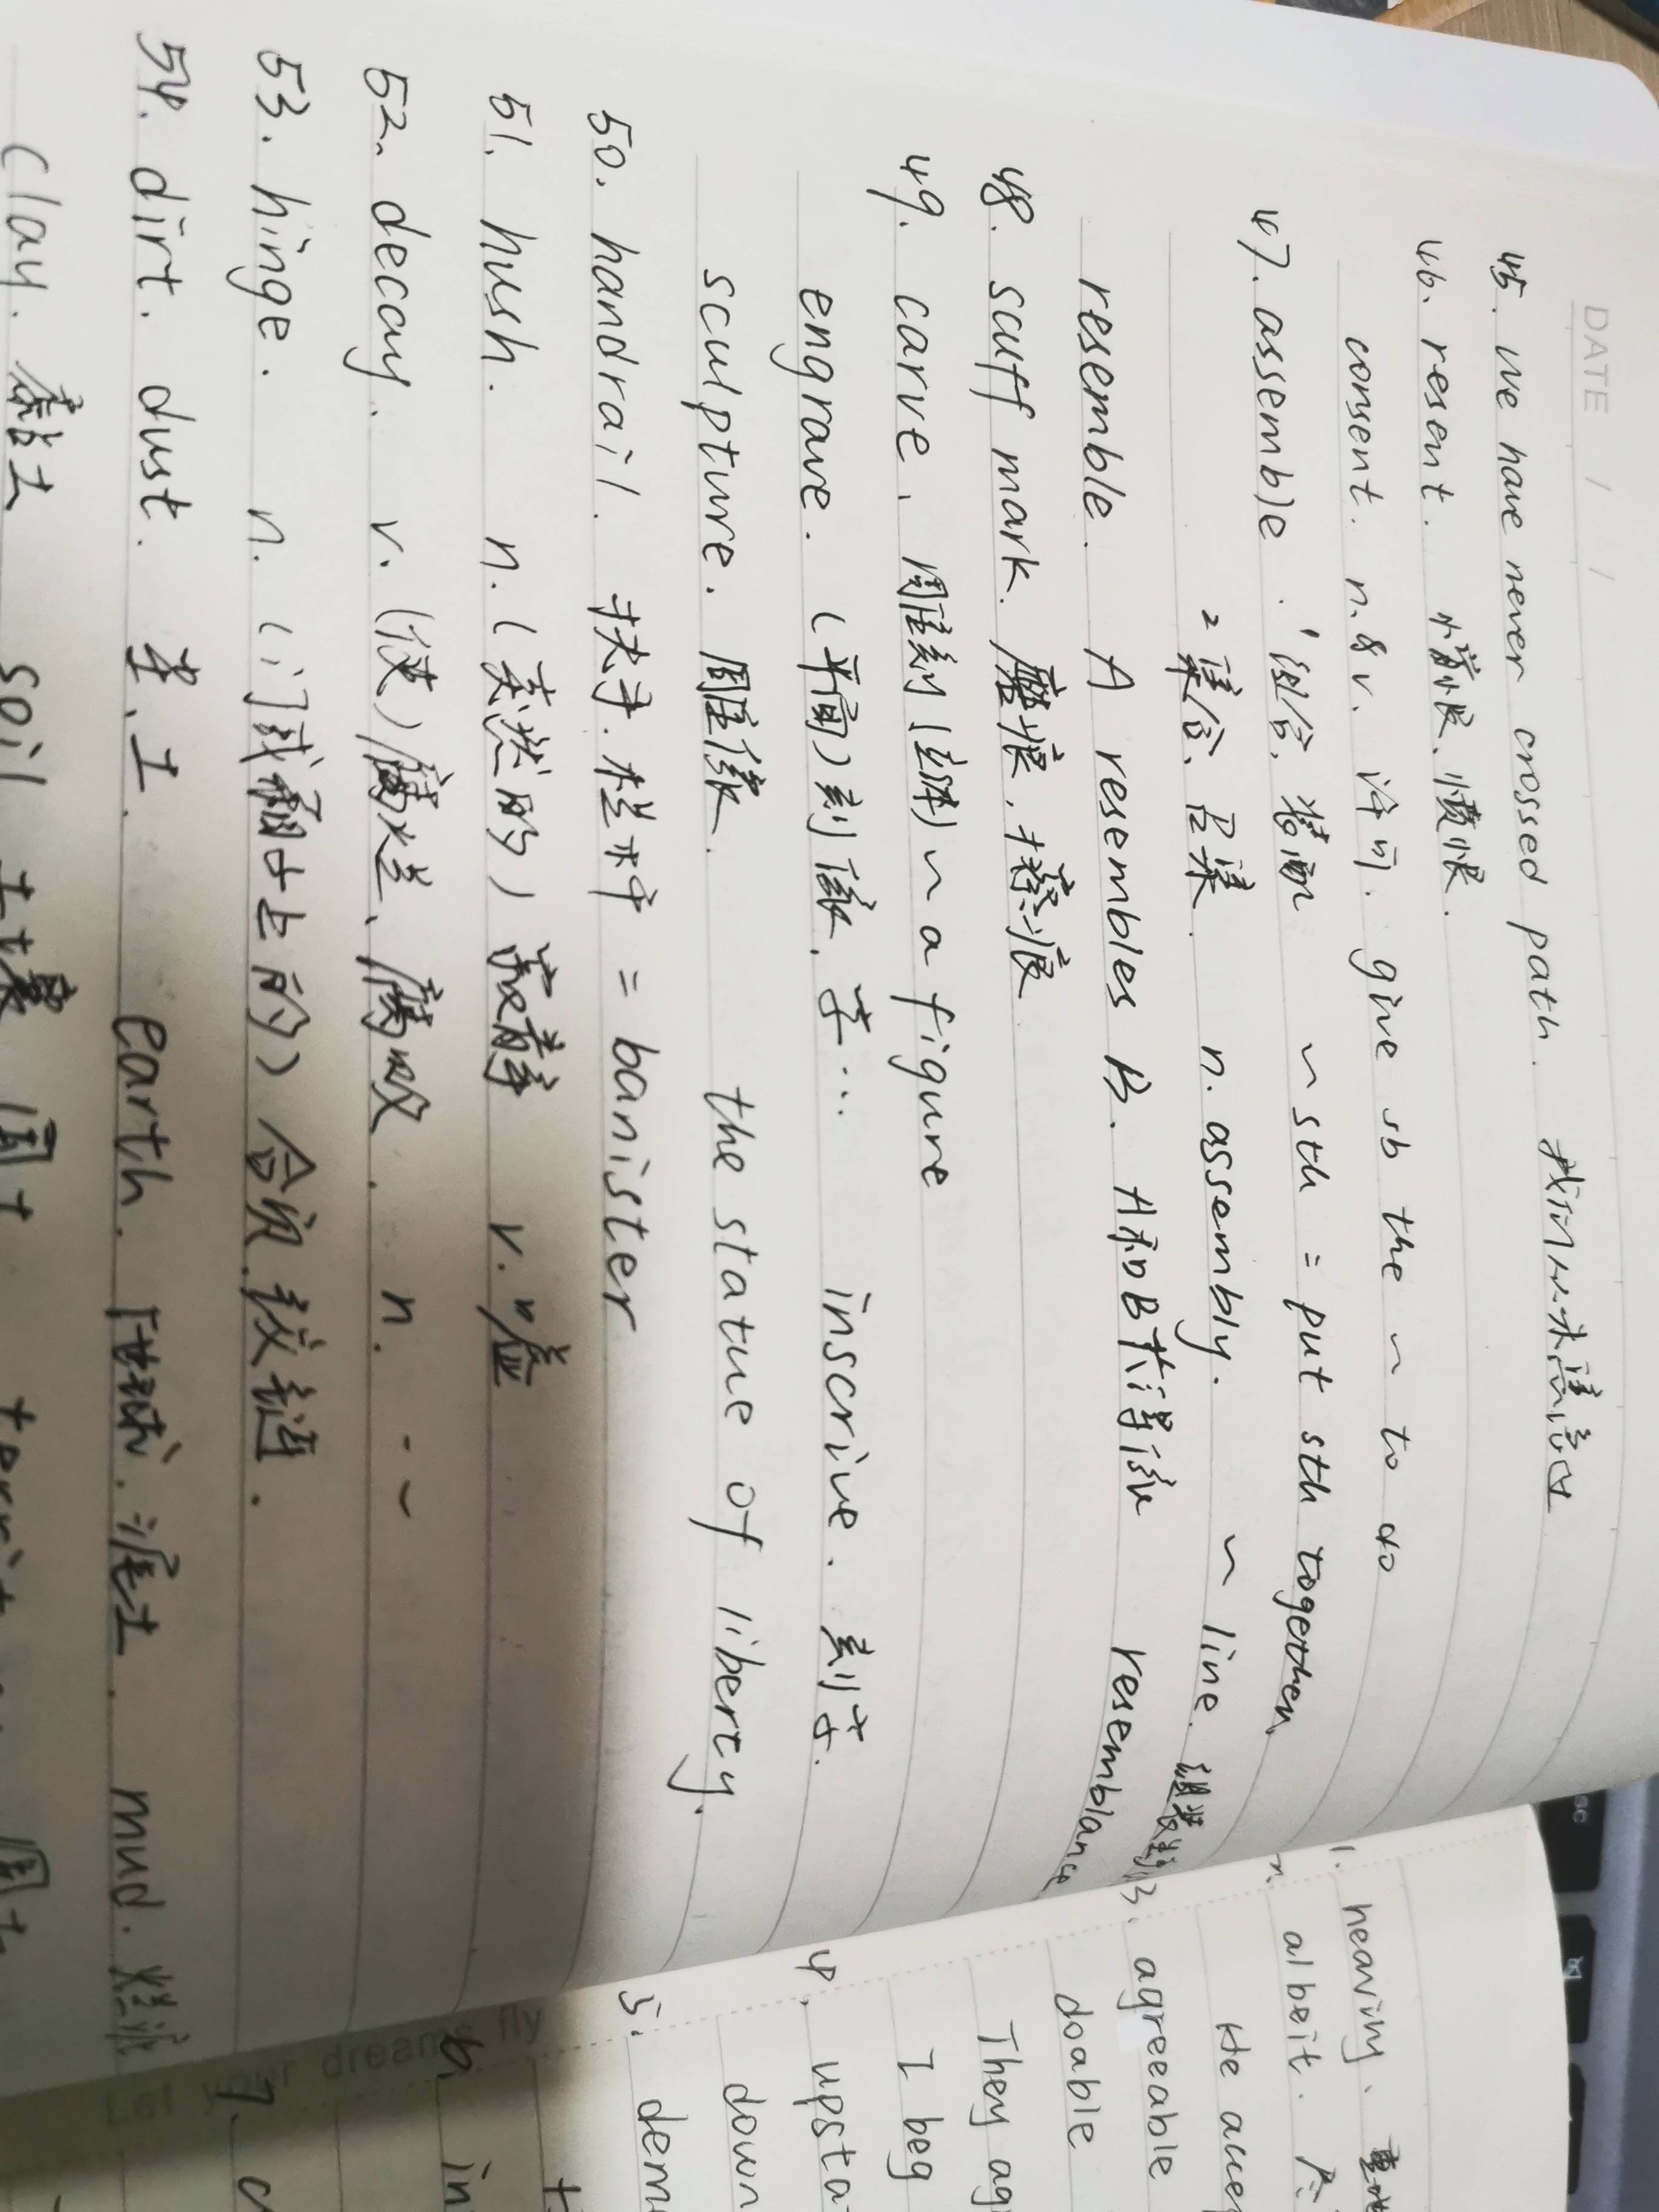 DATE / /
45. we have never crossed path. 我们从未蒙面过
46. resent. 憎恨、愤恨.
consent. n.&v. 许可. give sb the ~ to do
47. assemble. 1 组合, 装配 ~ sth = put sth together
2 集合、召集. n. assembly. ~ line. 组装线
resemble. A resembles B. A和B长得像 resemblance
48. scuff mark. 磨痕, 擦痕
49. carve, 雕刻(立体) ~ a figure
engrave. (平面)刻像, 于… inscrive. 刻于.
sculpture. 雕像. the statue of liberty.
50. handrail. 扶手.栏杆 = banister
51. hush. n.(突然的)寂静 v.嘘
52. decay. v.(使)腐烂、腐败. n. ~
53. hinge. n.(门或硒上的)合页.铰链.
54. dirt. dust. 尘、土. earth. 陆球.泥土. mud. 烂泥
clay. 黏土 soil 土壤
1. heaving.
albeit.
He
3. agreeable
doable
They
4.
I beg
5.
down
6.
7.
Let your dreams fly